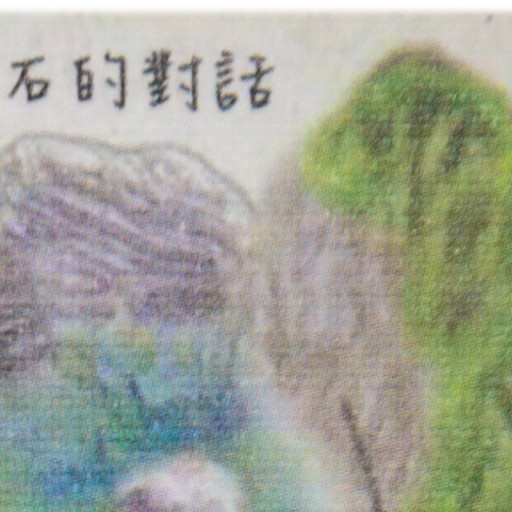 石的對話